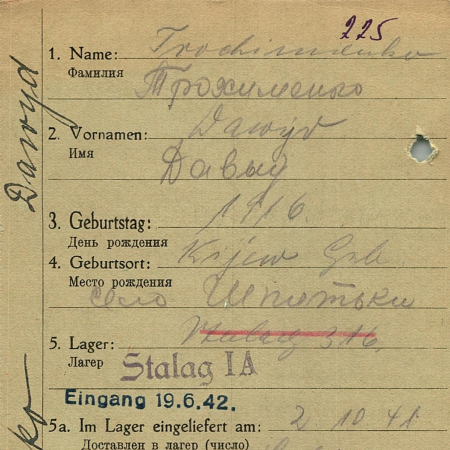 225
1. Name: Trochimenko
Фамилия Трохименко
2. Vornamen: Dawyd
Имя Давыд
3. Geburtstag: 1916.
День рождения
4. Geburtsort: Kijew Geb
Место рождения
село
5. Lager: Stalag 316.
Лагер Stalag IA
Eingang 19.6.42.
5a. Im Lager eingeliefert am: 2 10 41
Доставлен в лагер (число)
Dawyd
ko